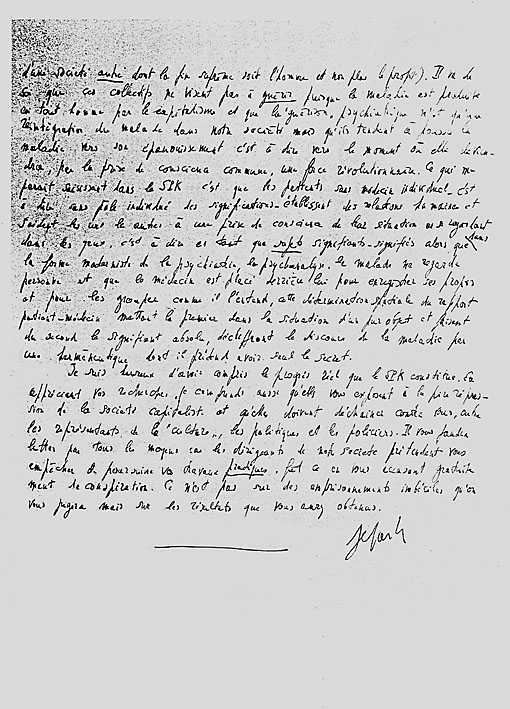 d'une société autre dont la fin suprême soit l'homme et non plus le profit). Il va de
soi que ces collectifs ne visent pas à guérir puisque la maladie est produite
en tout homme par le capitalisme et que la guérison psychiatrique n'est qu'une
réintégration du malade dans notre société mais qu'ils tendent à pousser la
maladie vers son épanouissement c'est à dire vers le moment où elle devien-
dra, par la prise de conscience commune, une force révolutionnaire. Ce qui me
paraît saisissant dans le SPK c'est que les patients sans médecin individuel - c'est
à dire sans pôle individué des significations - établissent des relations humaines et
s'aident les uns les autres à une prise de conscience de leur situation en se regardant
dans les yeux, c'est à dire en tant que sujets signifiants-signifiés alors que dans
la forme moderniste de la psychiatrie, la psychanalyse, le malade ne regarde
personne et que le médecin est placé derrière lui pour enregistrer ses propos
et pour les grouper comme il l'entend, cette détermination spatiale du rapport
patient-médecin mettant le premier dans la situation d'un pur objet et faisant
du second le signifiant absolu, déchiffrant le discours de la maladie par
une herméneutique dont il prétend avoir seul le secret.
Je suis heureux d'avoir compris le progrès réel que le SPK constitue. En
appréciant vos recherches, je comprends aussi qu'elles vous exposent à la pire répres-
sion de la société capitaliste et qu'elles doivent déchaîner contre vous, outre
les représentants de la "culture", les politiques et les policiers. Il vous faudra
lutter par tous les moyens car les dirigeants de notre société prétendent vous
empêcher de poursuivre vos travaux pratiques, fût ce en vous accusant gratuite
ment de conspiration. Ce n'est pas sur des emprisonnements imbéciles qu'on
vous jugera mais sur les résultats que vous aurez obtenus.